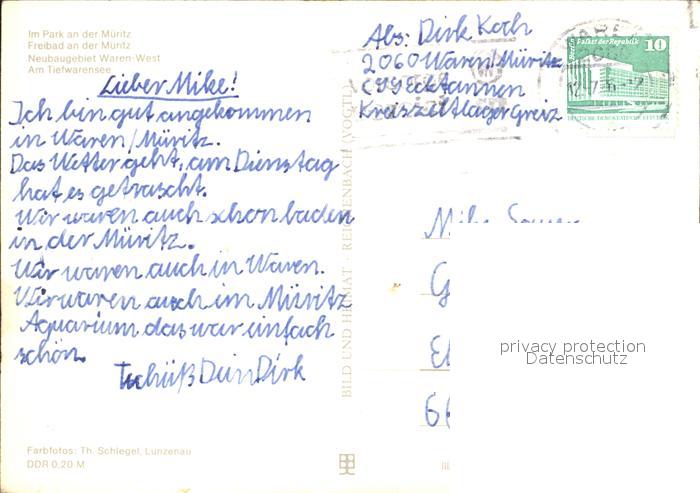 Im Park an der Müritz
Freibad an der Müritz
Neubaugebiet Waren-West
Am Tiefwarensee
Lieber Mike!
Ich bin gut angekommen
in Waren/Müritz.
Das Wetter geht, am Dienstag
hat es getrascht.
Wir waren auch schon baden
in der Müritz.
Wir waren auch in Waren.
Wir waren auch im Müritz
Aquarium das war einfach
schön.
Tschüß Dein Dirk
Farbfotos: Th. Schlegel, Lunzenau
DDR 0,20 M
BILD UND HEIMAT · REICHENBACH (VOGTL)
Abs: Dirk Koch
2060 Waren/Müritz
Ecktannen
Kreiszeltlager Greiz
Palast der Republik
10
DEUTSCHE DEMOKRATISCHE REPUBLIK
Mike
G
66
privacy protection
Datenschutz